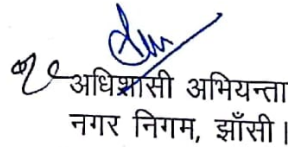 अधिशासी अभियन्ता
नगर निगम, झाँसी।